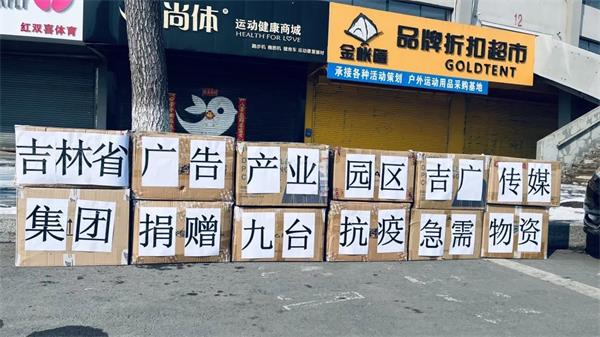 红双喜体育
尚体
运动健康商城
HEALTH FOR LOVE
金帐篷
品牌折扣超市
GOLDTENT
承接各种活动策划 户外运动用品采购基地
12
吉林省广告产业园区吉广传媒
集团捐赠九台抗疫急需物资